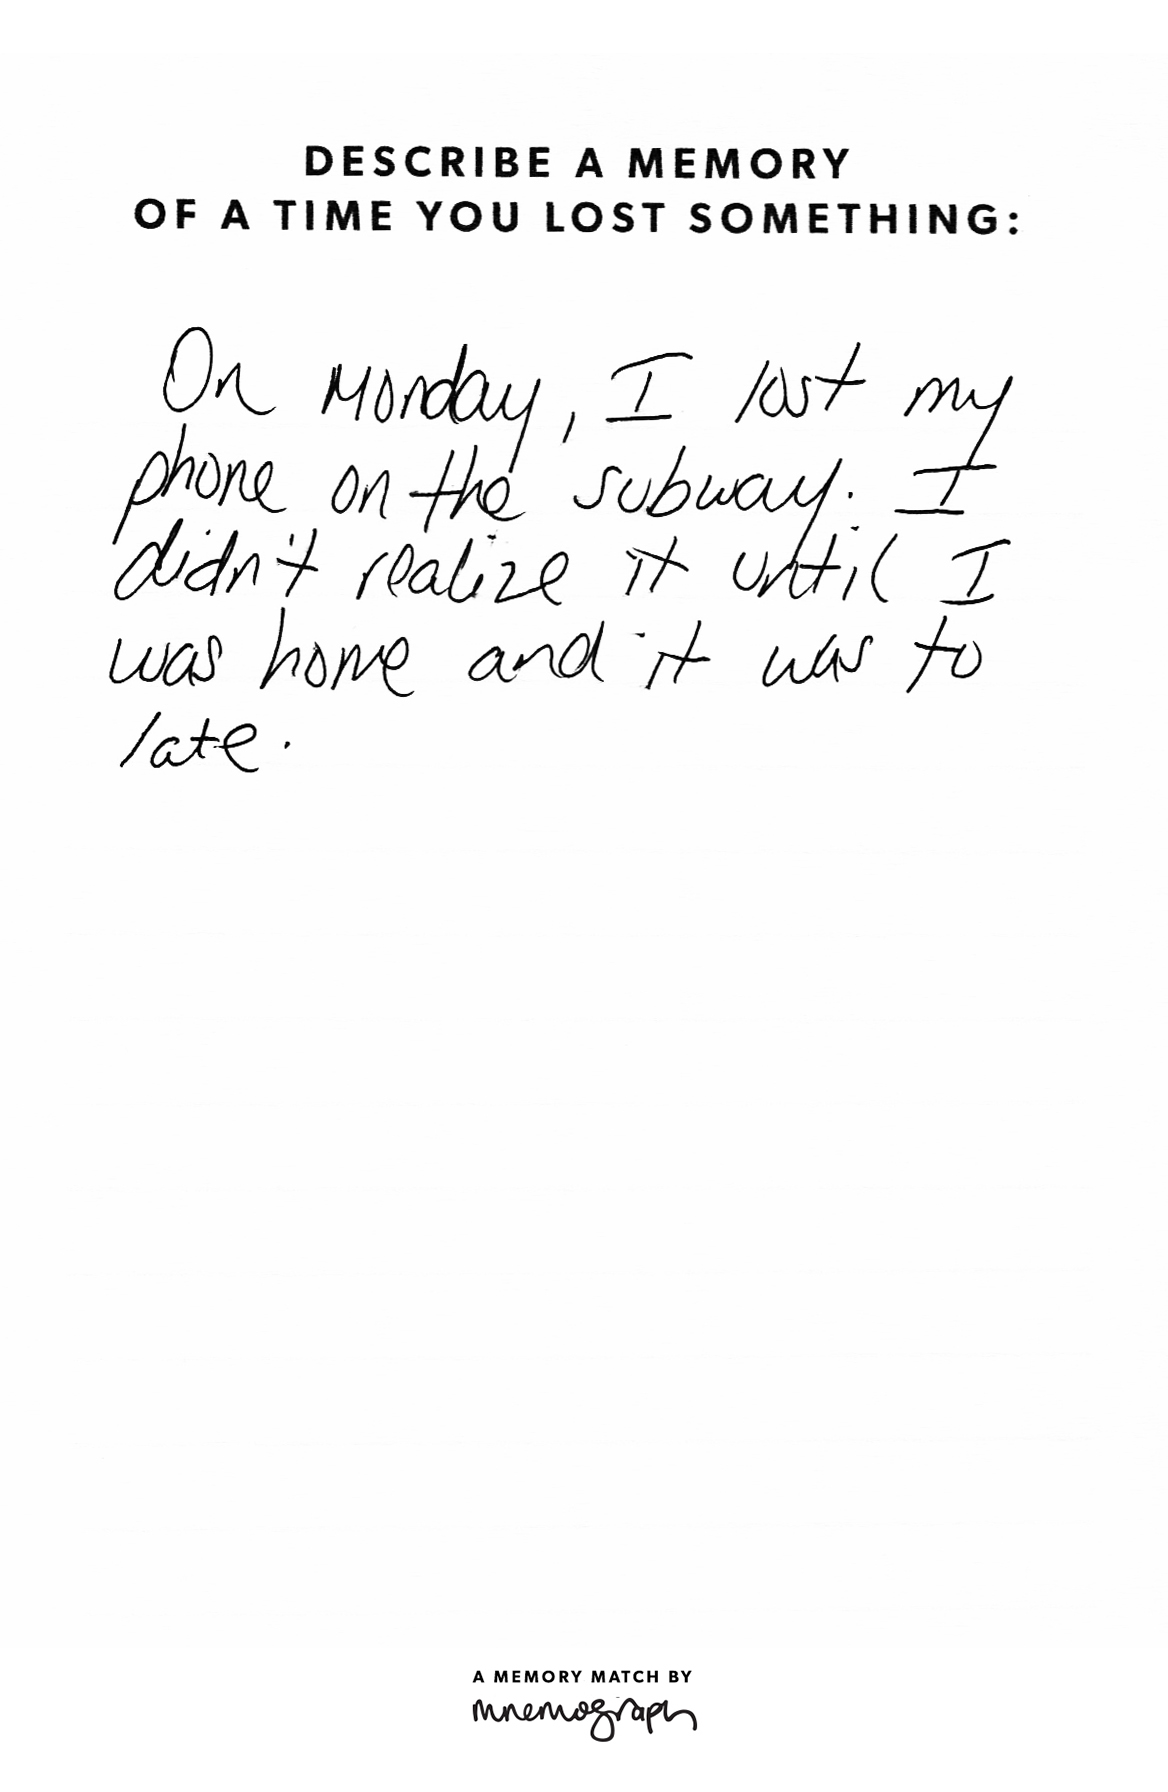 DESCRIBE A MEMORY
OF A TIME YOU LOST SOMETHING:
On Monday, I lost my
phone on the subway. I
didn't realize it until I
was home and it was to
late.
A MEMORY MATCH BY
mnemograph